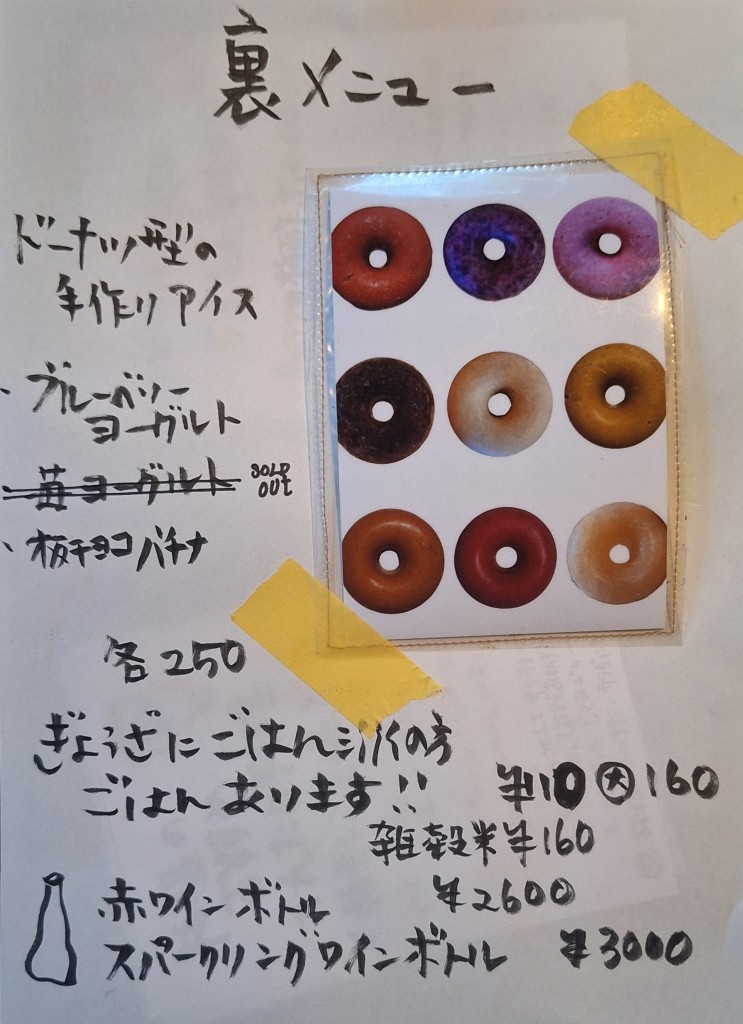 裏メニュー
ドーナツ型の
手作りアイス
・ブルーベリー
ヨーグルト
・苺ヨーグルト SOLD
OUT
・板チョコバナナ
各250
ぎょうざにごはん
の方
ごはんあります!!
¥110 大160
雑穀米¥160
赤ワインボトル ¥2600
スパークリングワインボトル ¥3000